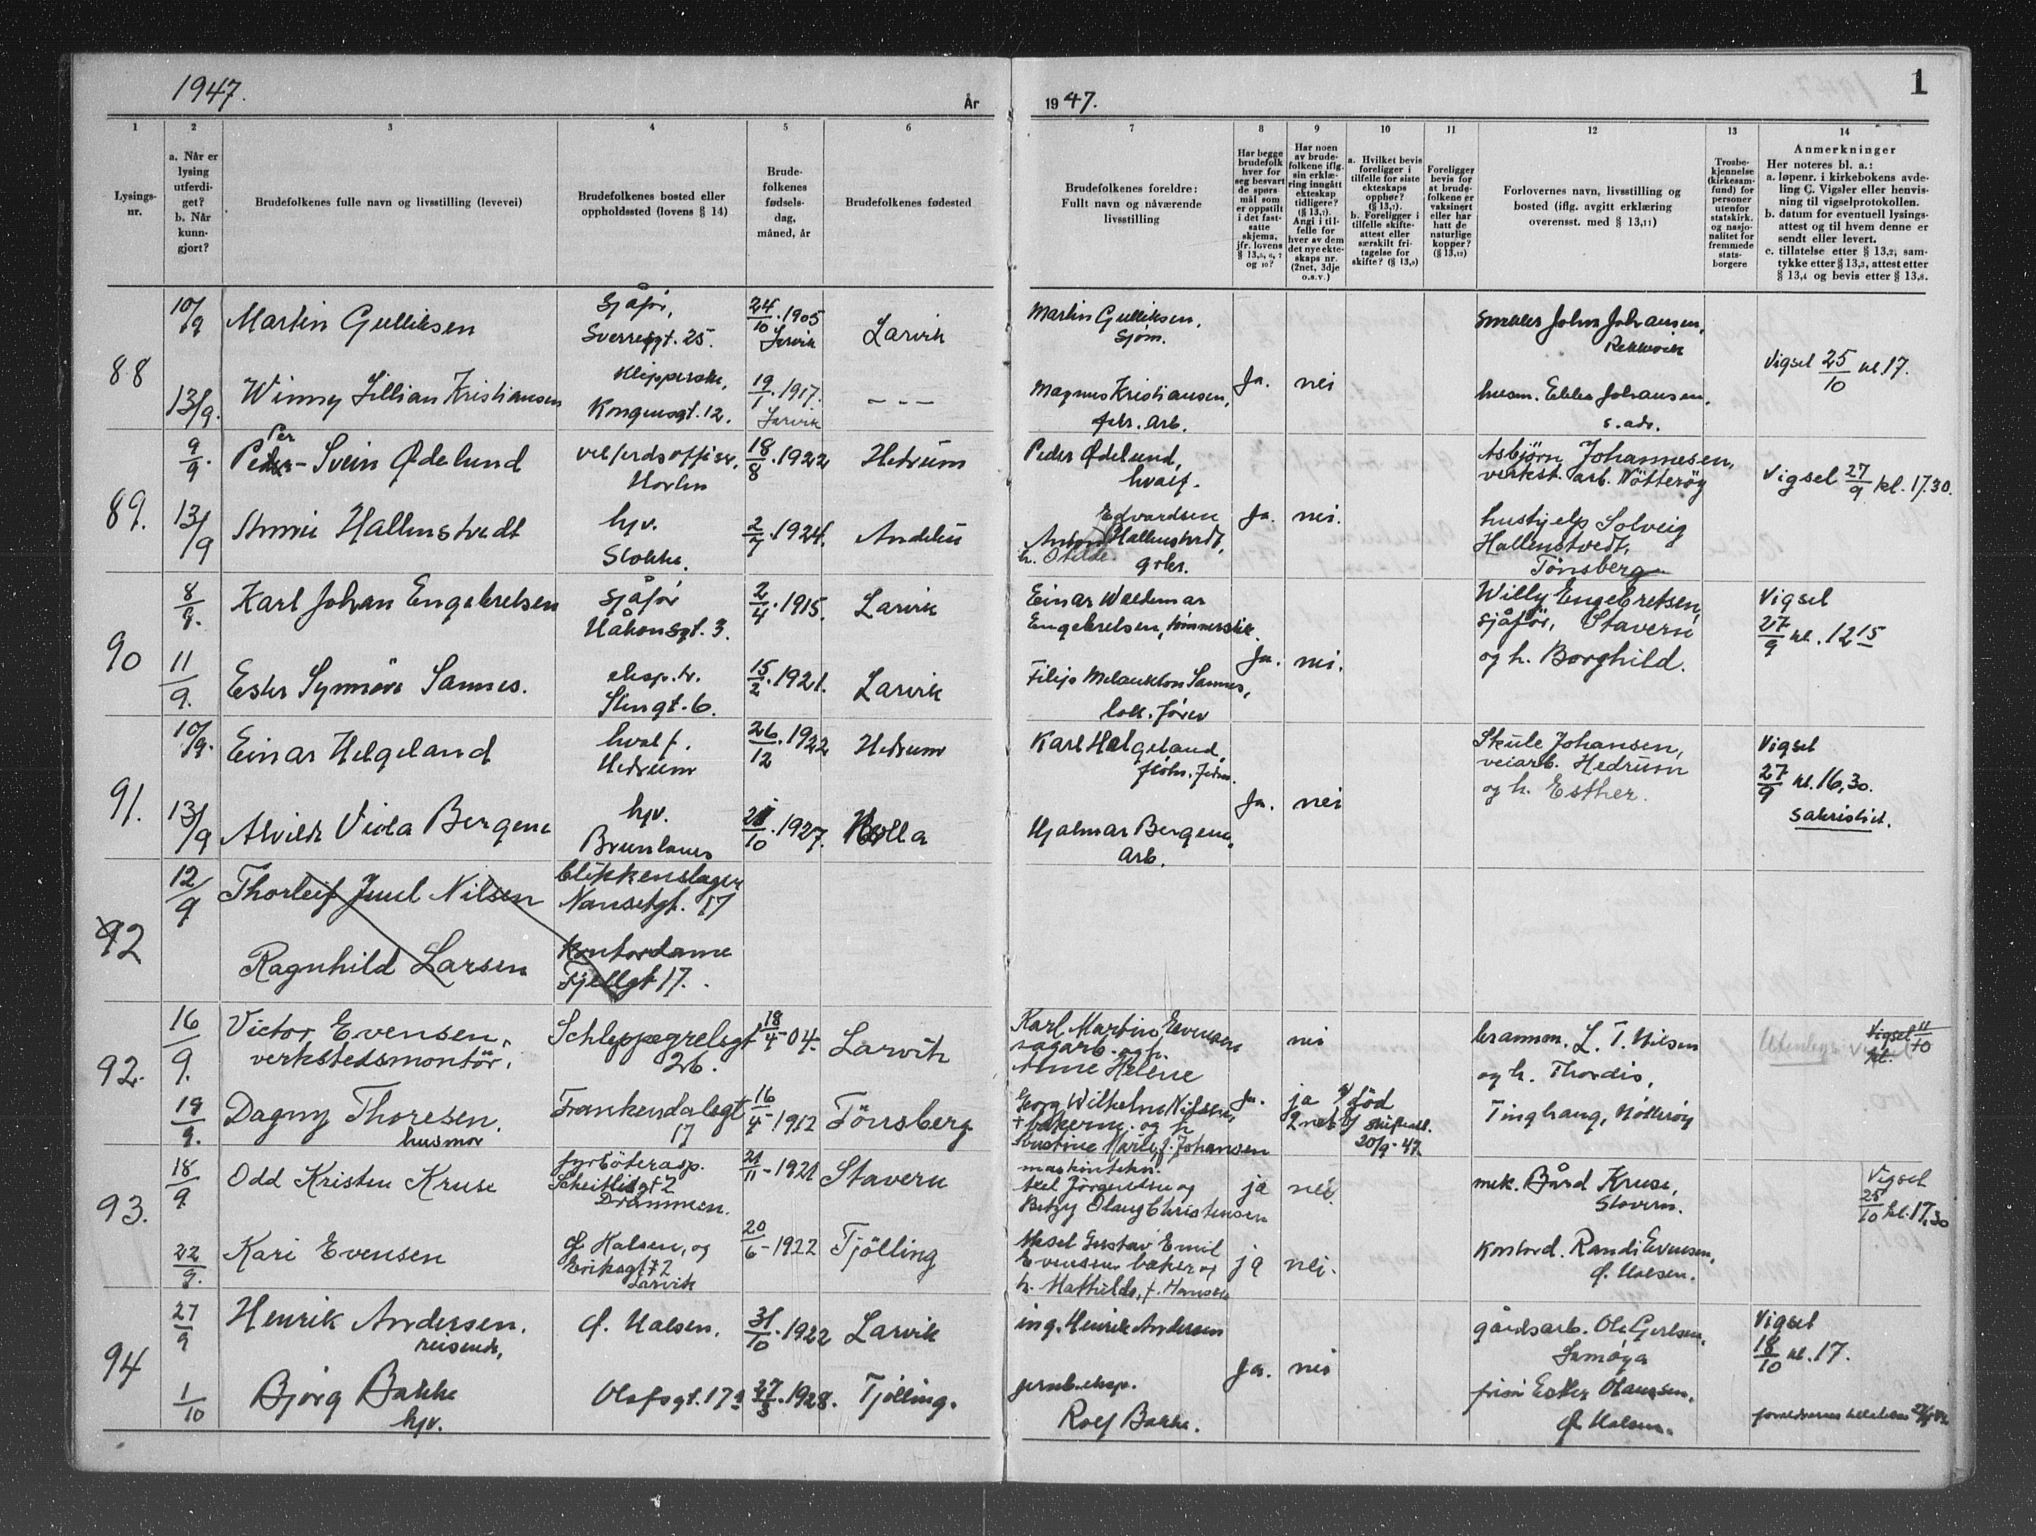 1947.
År
1947.
1
1
2
3
4
5
6
7
8
9
10
11
12
13
14
Lysings-
nr.
a. Når er
lysing
utferdi-
get?
b. Når
kunn-
gjort?
Brudefolkenes fulle navn og livsstilling (levevei)
Brudefolkenes bosted eller
oppholdssted (lovens § 14)
Brude-
folkenes
fødsels-
dag,
måned, år
Brudefolkenes fødested
Brudefolkenes foreldre:
Fullt navn og nåværende
livsstilling
Har begge
brudefolk
hver for
seg besvart
de spørs-
mål som
er oppstilt
i det fast-
satte
skjema,
jfr. lovens
§ 13,5, 6, 7
og 10?
Har noen
av brude-
folkene iflg.
sin erklæ-
ring inngått
ekteskap
tidligere?
(§ 13,7).
Angi i til-
felle for
hver av dem
det nye ekte-
skaps nr.
(2net, 3dje
o.s.v.)
a. Hvilket bevis
foreligger i
tilfelle for siste
ekteskaps
opphør?
(§ 13,7).
b. Foreligger i
tilfelle skifte-
attest eller
særskilt fri-
tagelse for
skifte? (§ 13,9)
Foreligger
bevis for
at brude-
folkene er
vaksinert
eller har
hatt de
naturlige
kopper?
(§ 13,12)
Forlovernes navn, livsstilling og
bosted (iflg. avgitt erklæring
overensst. med § 13,11)
Trosbe-
kjennelse
(kirkesam-
fund) for
personer
utenfor
statskirk.
og nasjo-
nalitet for
fremmede
stats-
borgere
Anmerkninger
Her noteres bl. a.:
a. løpenr. i kirkebokens avde-
ling C. Vigsler eller henvis-
ning til vigselprotokollen.
b. datum for eventuell lysings-
attest og til hvem denne er
sendt eller levert.
c. tillatelse etter § 13,2, sam-
tykke etter § 13,3, attest etter
§ 13,4 og bevis etter § 13,8.
88
10/9 Martin Gulliksen
sjåfør,
Sverresgt. 25.
24/10 . 1905
Larvik
Larvik
Martin Gulliksen,
sjøm.
John Johansen,
Rekkevik
13/9. Winny Lillian Kristiansen
Klipperske,
Kongensgt. 12.
19/1 . 1917.
Larvik
- - -
Magnus Kristiansen,
fabr. arb.
Ja. nei
husm. Ebba Johansen.
s. adr.
Vigsel 25/10 kl. 17.
89.
9/9. Per
Peder - Svein Ødelund
velferdsoffiser,
Horten
18/8 . 1922
Hedrum
Peder Ødelund,
hvalf.
Asbjørn Johannesen,
verkst. arb. Nøtterøy
Vigsel 27/9 kl. 17.30.
13/9 Annie Hallenstvedt
hjv.
Stokke.
2/7 . 1924.
Andebu
Edvardsen
Anton Hallenstvedt,
h. Otilde gbr.
Ja. nei.
hushjelp Solveig
Hallenstvedt,
Tønsberg
90
8/9. Karl Johan Engebretsen
sjåfør
Håkonsgt. 3.
2/4 . 1915.
Larvik
Einar Waldemar
Engebretsen,
Willy Engebretsen,
sjåfør, Stavern
og h. Borghild.
Vigsel
27/9 kl. 12 15
11/9. Ester Synnøve Sannes.
eksp. tr.
Stengt. 6.
15/2 . 1921.
Larvik
Filip Melankton Sannes,
lok. fører
Ja. nei.
91.
10/9. Einar Helgeland
hvalf.
Hedrum
26/12 . 1922
Hedrum
Karl Helgeland,
Skule Johansen,
veiarb. Hedrum
og h. Esther.
Vigsel
27/9 kl. 16,30.
sakristiet.
13/9 Alvilde Viola Bergene
hjv.
Brunlanes
21/10 . 1927.
Holla
Hjalmar Bergene,
arb.
Ja. nei
92
12/9 Thorleif Juul Nilsen
blikkenslager
Nansetgt. 17
Ragnhild Larsen
Kontordame
Fjellgt 17.
92.
16/9. Victor Evensen,
verkstedsmontør.
Schleppegrelsgt
26.
18/4 - 04.
Larvik
Karl Martin Evensen
sagarb. og h.
Anne Helene
nei
brannm. L. T. Nilsen
og h. Thordis,
Utenbys Vigsel
Vigsel 11/10
kl.
19/9. Dagny Thoresen.
husmor
Frankendalsgt
17
16/4 - 1912
Tönsberg
Georg Wilhelm Nilsen,
+ bakerm. og h
f. Johansen
Ja. ja
2net
a/ død
b/ skifteatt.
20/9 - 47.
Tinghaug, Nøtterøy
93.
18/9. Odd Kristen Kruse
fyrbøterasp.
Scheitliesgt 2
Drammen.
21/11 - 1921
Stavern
maskintekn.
Axel Jørgensen og
Betzy Olaug Christensen
ja nei.
mek. Bård Kruse,
Stavern.
Vigsel
25/10 kl. 17,30
22/9. Kari Evensen
Ø. Halsen, og
Eriksgt 2
Larvik
20/6 - 1922
Tjölling
Aksel Gustav Emil
Evensen baker og
h. Mathilde, f. Hansen
ja nei.
Kontord. Randi Evensen,
Ø. Halsen.
94
27/9 Henrik Andersen.
reisende,
Ø. Halsen.
31/10 . 1922
Larvik
ing. Henrik Andersen
gårdsarb. Ole Gertsen,
Vigsel
18/10 kl. 17.
1/10 Bjørg Bakke
hjv.
Olafsgt. 17a
27/3 . 1928.
Tjølling.
jernb. eksp.
Rolf Bakke.
Ja. nei
Ester Olaussen.
Ø. Halsen.
foreldrenes tillatelse